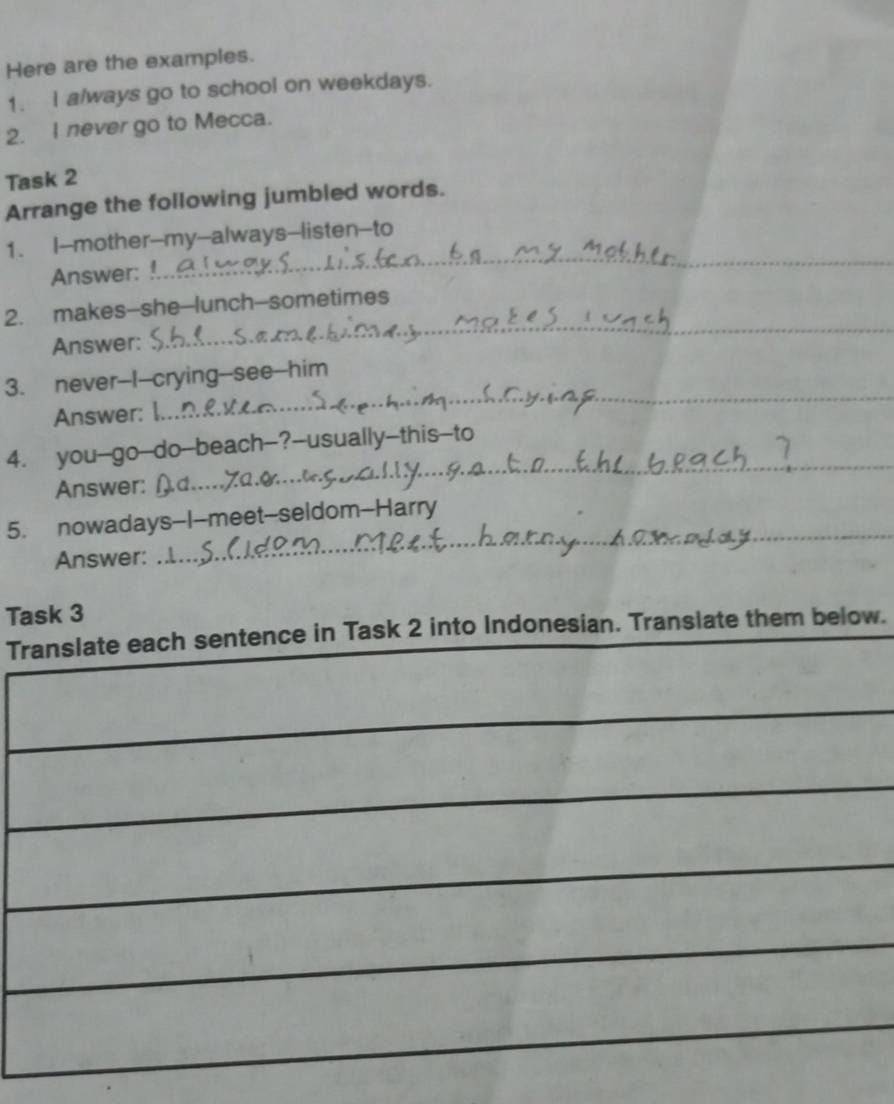 Here are the examples.
1. I always go to school on weekdays.
2. I never go to Mecca.
Task 2
Arrange the following jumbled words.
1. I–mother–my–always–listen–to
Answer: I always listen to my mother
2. makes–she–lunch–sometimes
Answer: She sometimes makes lunch
3. never–I–crying–see–him
Answer: I never see him crying
4. you–go–do–beach–?–usually–this–to
Answer: Do you usually go to the beach ?
5. nowadays–I–meet–seldom–Harry
Answer: I seldom meet harry
Task 3
Translate each sentence in Task 2 into Indonesian. Translate them below.